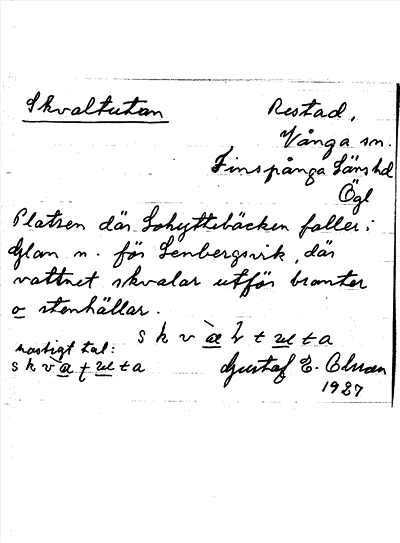 Skvaltutan
Restad,
Vånga sn.
Finspånga Länshd
Ögl
Platsen där Sohyttebäcken faller i
Glan n. för Lenbergsvik, där
vattnet skvalar utför branter
o stenhällar.
hastigt tal:
Gustaf E. Olsson
1927